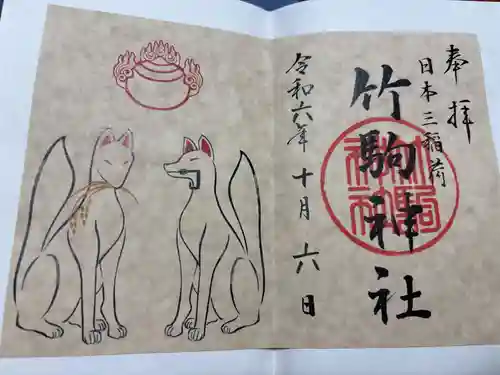 奉拝
日本三稲荷
竹駒神社
竹駒神社
令和六年十月六日